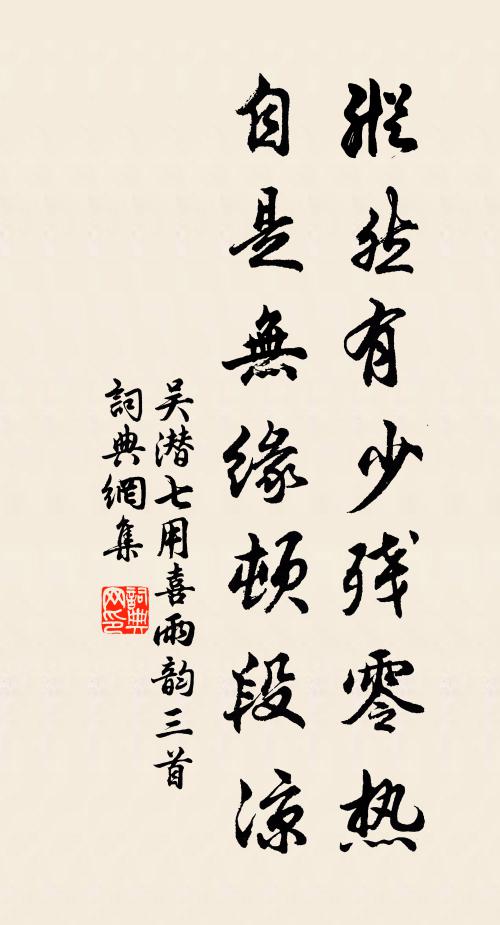 縱然有少残零热
自是無緣頓段涼
吴潜七用喜雨韵三首
詞典網集
詞典网印